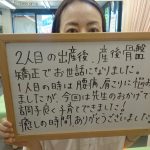 2人目の出産後、産後骨盤
矯正でお世話になりました。
1人目の時は腰痛、肩こりに悩み
ましたが、今回は先生のおかげで
調子良く子育てできました!
癒しの時間ありがとうございました